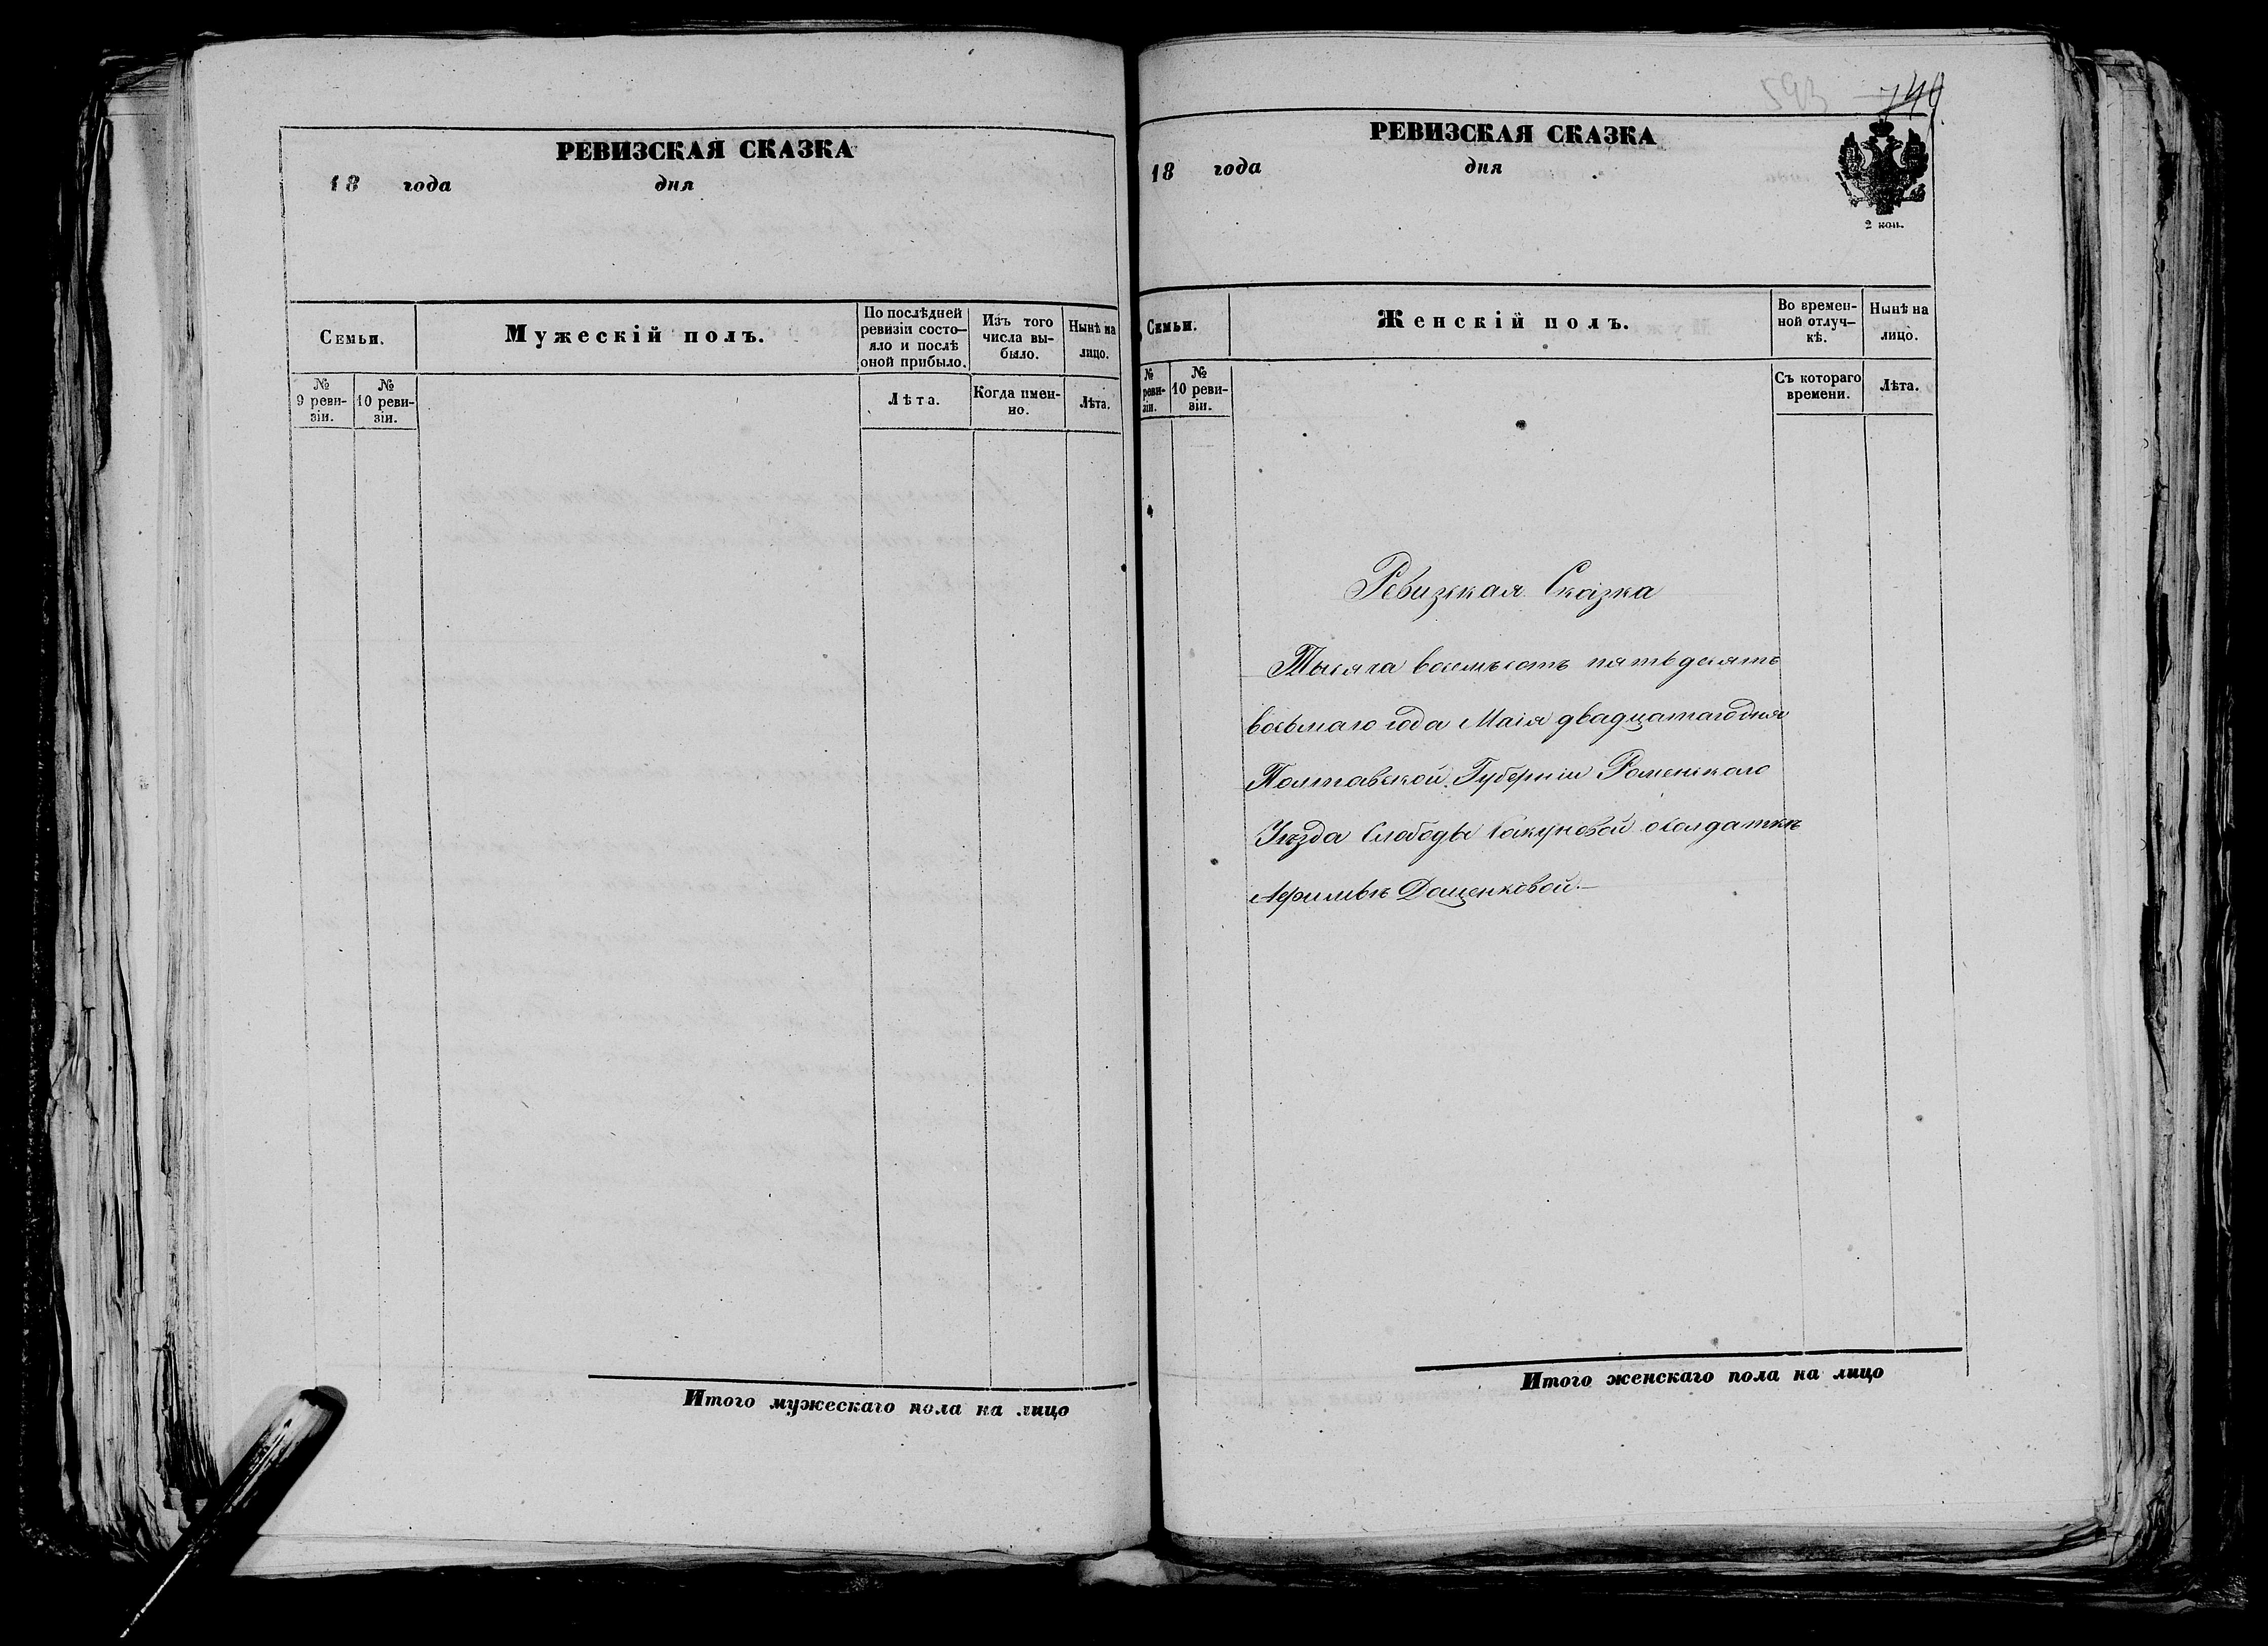 РЕВИЗСКАЯ СКАЗКА
18 года дня
Семьи.
Мужескій полъ.
По послѣдней ревизіи состо-
яло и послѣ
оной прибыло.
Изъ того
числа вы-
было.
Нынѣ на
лицо.
№
9 реви-
зіи.
№
10 реви-
зіи.
Лѣта.
Когда имен-
но.
Лѣта.
Итого мужескаго пола на лицо
593 749
РЕВИЗСКАЯ СКАЗКА
18 года дня
2 коп.
Семьи.
Женскій полъ.
Во времен-
ной отлуч-
кѣ.
Нынѣ на
лицо.
№
реви-
зіи.
№
10 реви-
зіи.
Съ котораго
времени.
Лѣта.
Ревизская Сказка
Тысяча восемъсотъ пятьдесятъ
восьмаго года Маія двадцатаго дня
Полтавской Губерніи Роменскаго
Уѣзда Слободы о солдаткѣ
Доценковой.
Итого женскаго пола на лицо